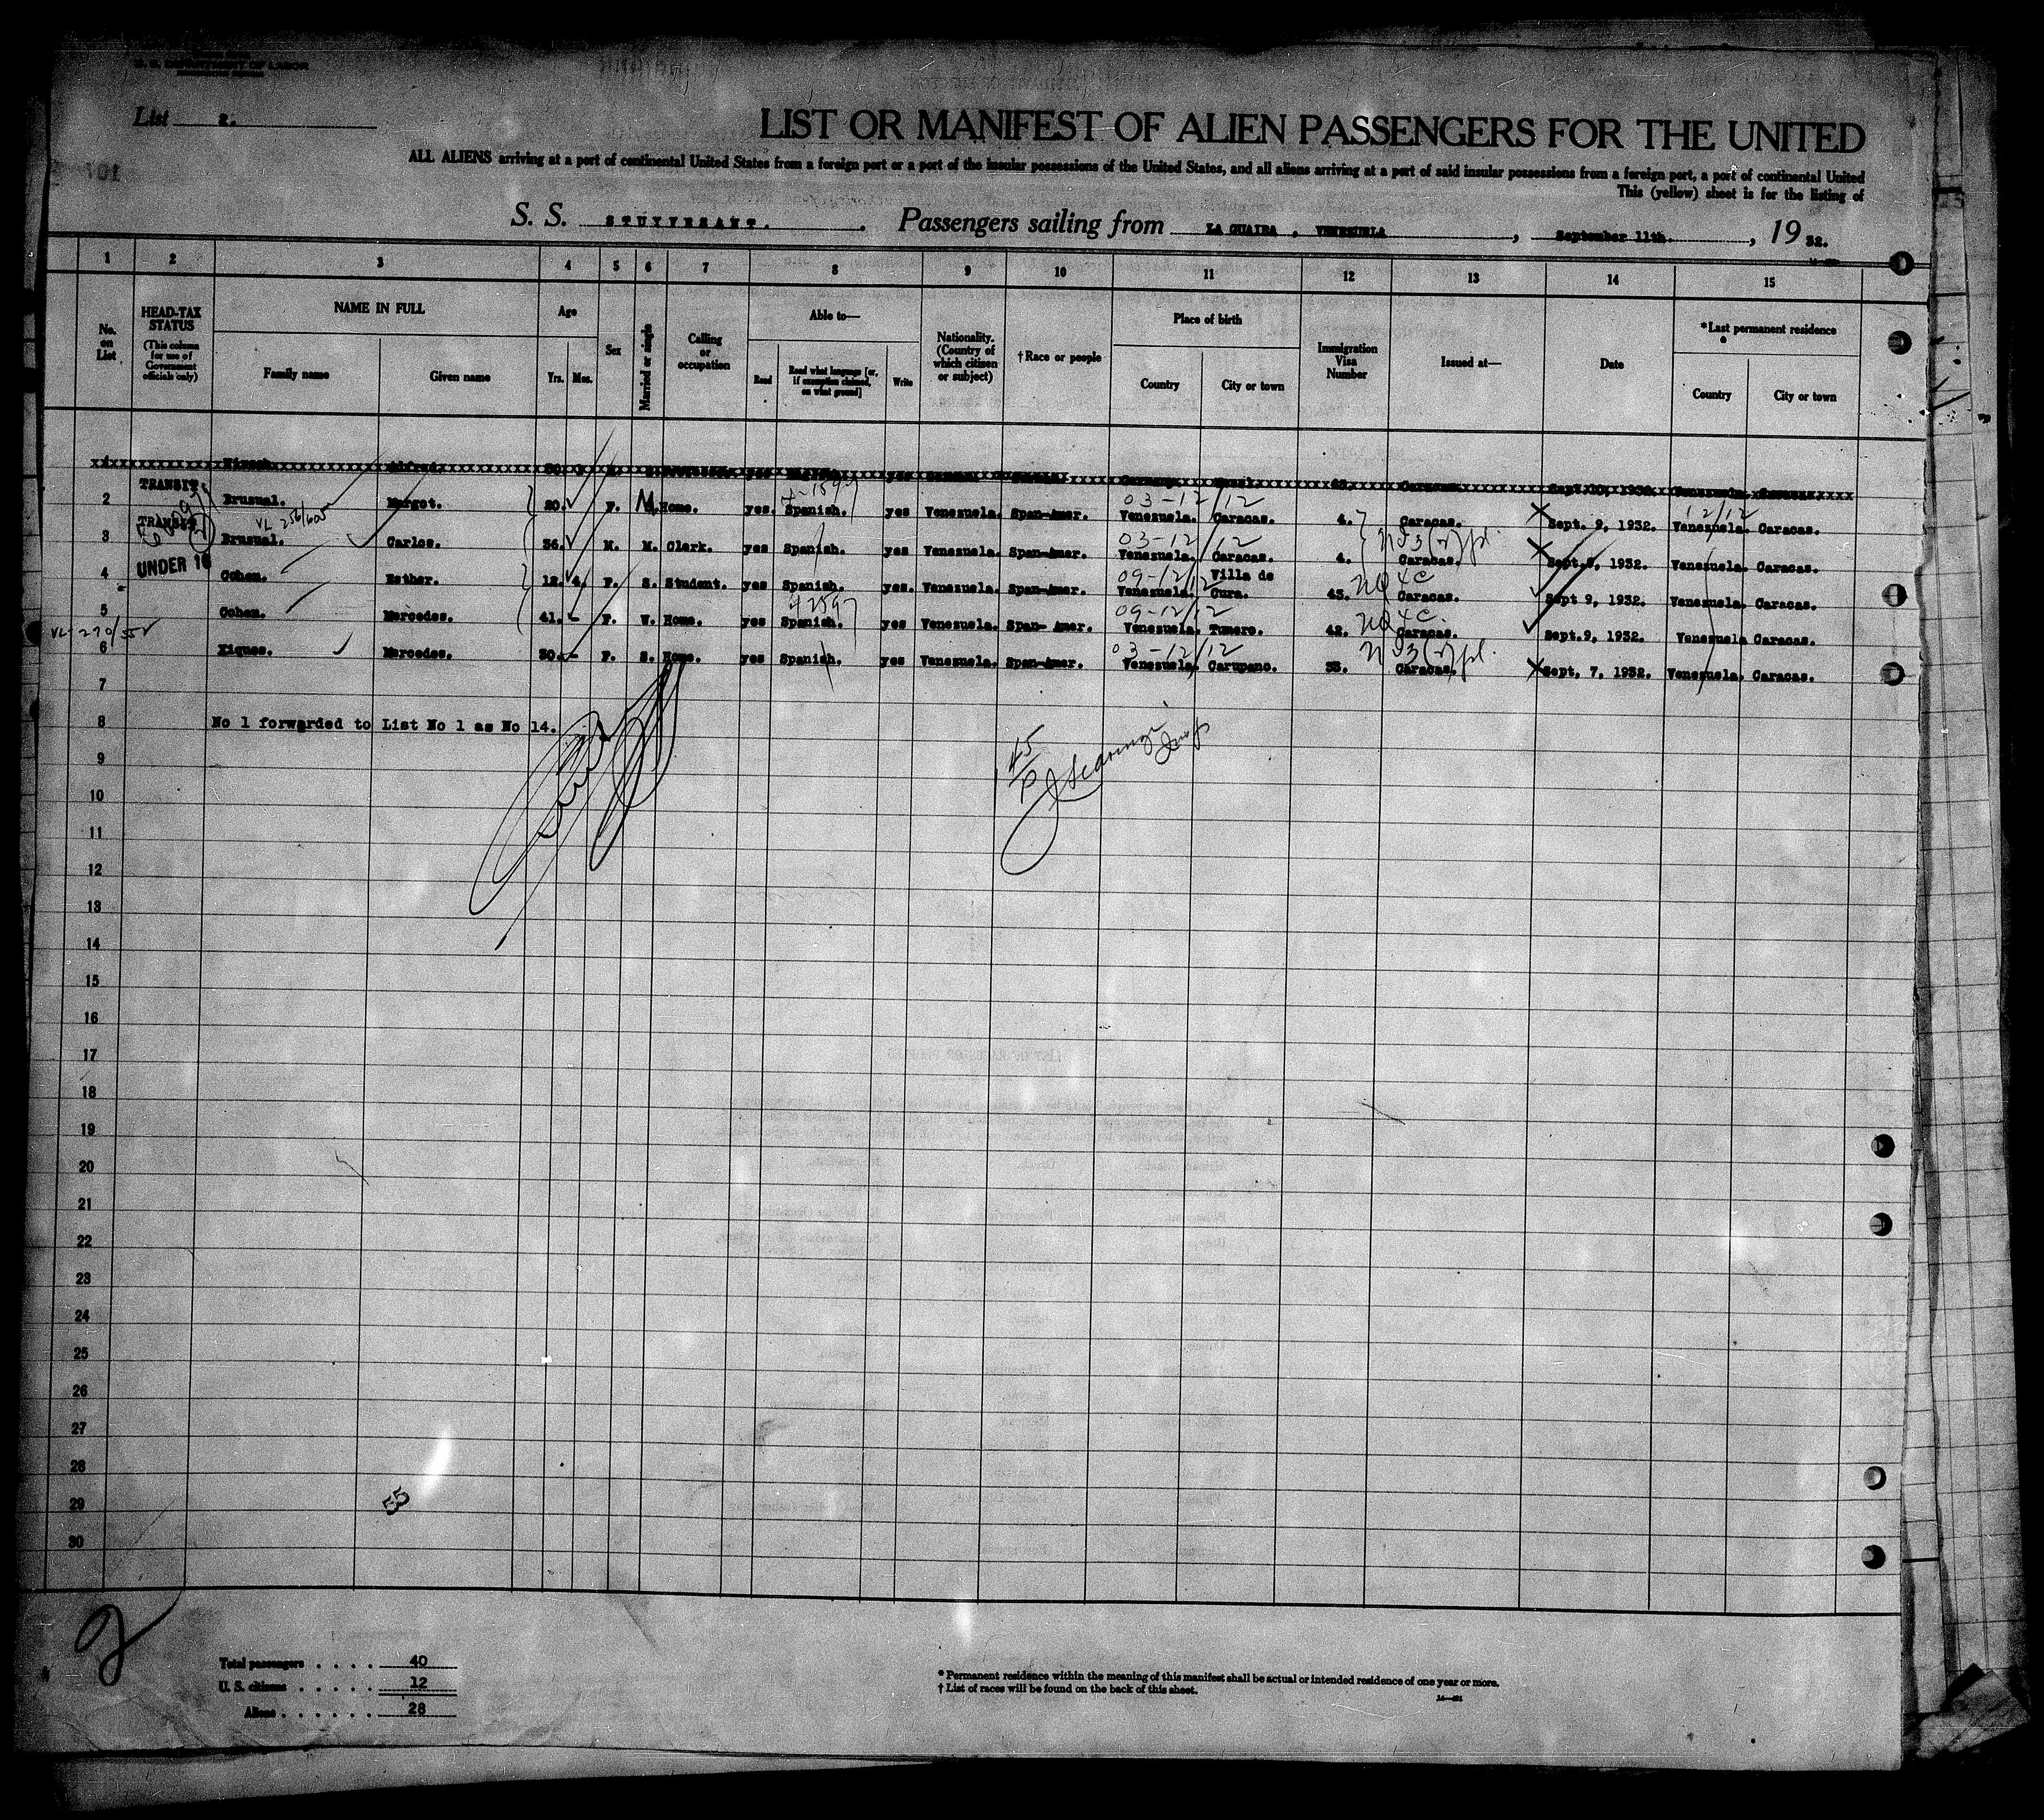 U. S. DEPARTMENT OF LABOR
List 2.
LIST OR MANIFEST OF ALIEN PASSENGERS FOR THE UNITED
ALL ALIENS arriving at a port of continental United States from a foreign port or a port of the insular possessions of the United States, and all aliens arriving at a port of said insular possessions from a foreign port, a port of continental United
This (yellow) sheet is for the listing of
S. S. STUYVESANT. Passengers sailing from LA GUAIRA , VENEZUELA , September 11th. , 19 32.
1 2 3 4 5 6 7 8 9 10 11 12 13 14 15
No. on List
HEAD-TAX STATUS (This column for use of Government officials only)
NAME IN FULL
Family name Given name
Age
Yrs. Mos.
Sex
Married or single
Calling or occupation
Able to—
Read Read what language [or, if exemption claimed, on what ground] Write
Nationality. (Country of which citizen or subject)
†Race or people
Place of birth
Country City or town
Immigration Visa Number
Issued at—
Date
*Last permanent residence
Country City or town
1 Alfred. yes yes Caracas. Sept. 10, 1932. Venezuela. Caracas.
TRANSIT. 4-1597 03-12/12 12/12
2 Brusual. Margot. 20. F. M. Home. yes. Spanish. yes Venezuela. Span-Amer. Venezuela. Caracas. 4. Caracas. Sept. 9, 1932. Venezuela. Caracas.
TRANSIT VL 256/605 03-12/12
3 Brusual. Carlos. 36. M. M. Clerk. yes Spanish. yes Venezuela. Span-Amer. Venezuela. Caracas. 4. Caracas. Sept.9, 1932. Venezuela. Caracas.
UNDER 16 09-12/12 Villa de NQ4C
4 Cohen. Esther. 12. 4. F. S. Student. yes Spanish. yes. Venezuela. Span-Amer. Venezuela. Cura. 43. Caracas. Sept 9, 1932. Venezuela. Caracas.
42597 09-12/12 NQ4C.
5 Cohen. Mercedes. 41. F. W. Home. yes Spanish. yes Venezuela. Span- Amer. Venezuela. Tumero. 42. Caracas. Sept.9, 1932. Venezuela Caracas.
VL-270/552 03-12/12
6 Xiques. Mercedes. 30. - F. S. Home. yes Spanish. yes Venezuela. Span-Amer. Venezuela. Carupano. 33. Caracas. Sept, 7, 1932. Venezuela. Caracas.
7
8 No 1 forwarded to List No 1 as No 14.
9
10
11
12
13
14
15
16
17
18
19
20
21
22
23
24
25
26
27
28
29
30
55
2
Total passengers . . . . 40
U. S. citizens . . . . . 12
Aliens . . . . . . 28
* Permanent residence within the meaning of this manifest shall be actual or intended residence of one year or more.
† List of races will be found on the back of this sheet.